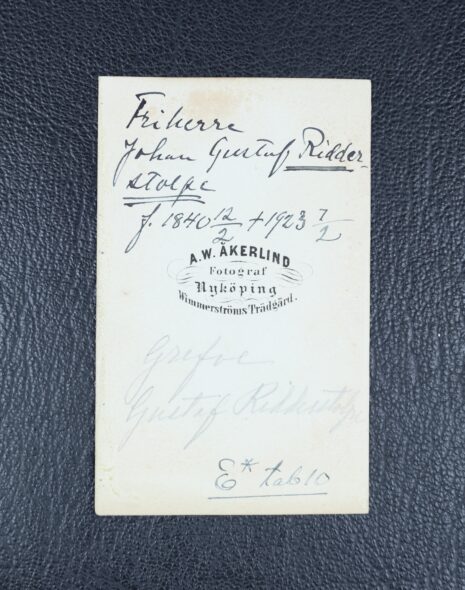 Friherre
Johan Gustaf Ridder-
stolpe
f. 1840 12/2 + 1923 7/2
A.W. ÅKERLIND
Fotograf
Nyköping
Wimmerströms Trädgård.
Grefve
Gustaf Ridderstolpe
E* tab 10